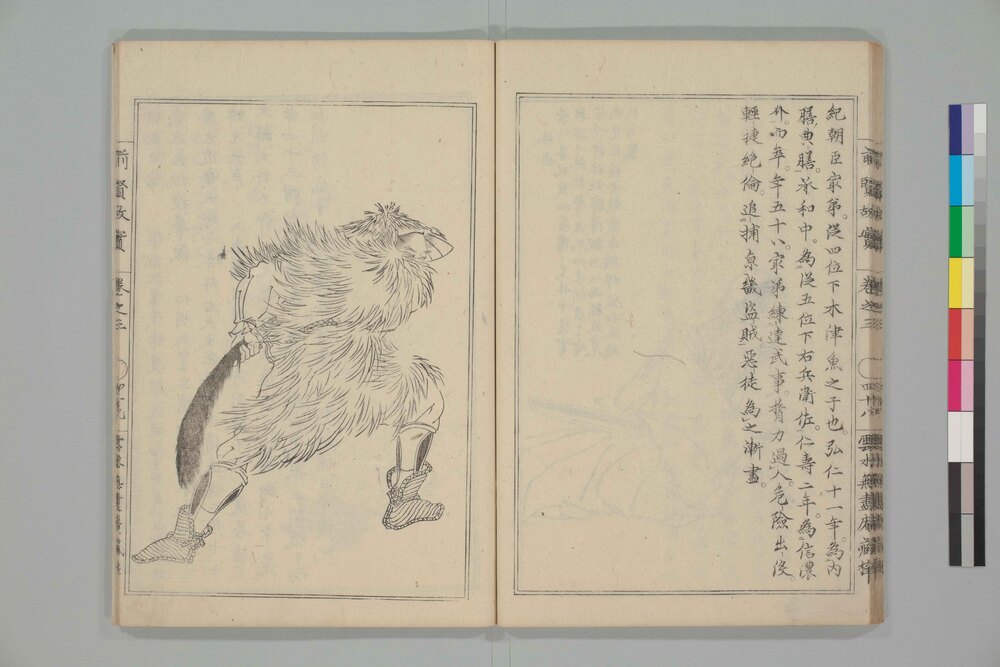 紀朝臣家弟。從四位下木津魚之子也。弘仁十一年。為内
膳典膳。承和中。為從五位下右兵衛佐。仁壽二年。為信濃
介。而卒。年五十八。家弟練達武事。膂力過人。危險出沒。
輕捷絶倫。追捕京畿盜賊。惡徒為之漸盡。
前賢故實
卷之三
四十八
雲水無盡庵藏梓
前賢故實
卷之三